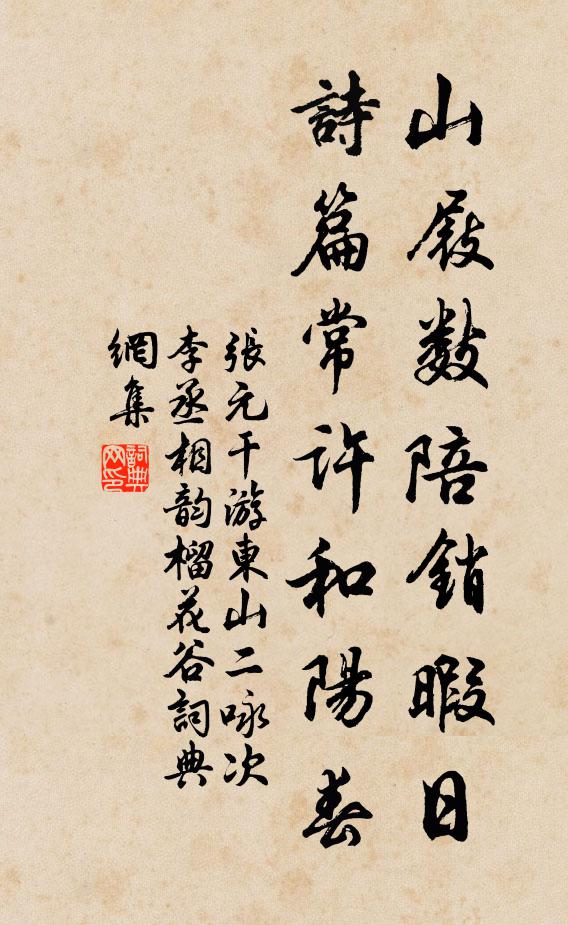 山屐數陪銷暇日
詩篇常許和陽春
張元干游東山二咏次
李丞相韵榴花谷詞典
網集
詞典
网印